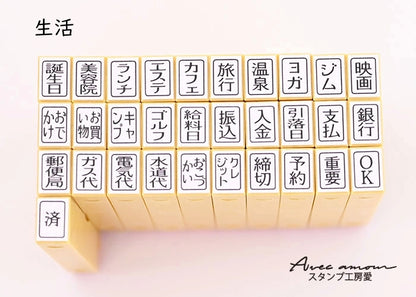 生活
誕生日 美容院 ランチ エステ カフェ 旅行 温泉 ヨガ ジム 映画
おでかけ お買い物 キャンプ ゴルフ 給料日 振込 入金 引落日 支払 銀行
郵便局 ガス代 電気代 水道代 おこづかい クレジット 締切 予約 重要 OK
済
Avec amour
スタンプ工房愛